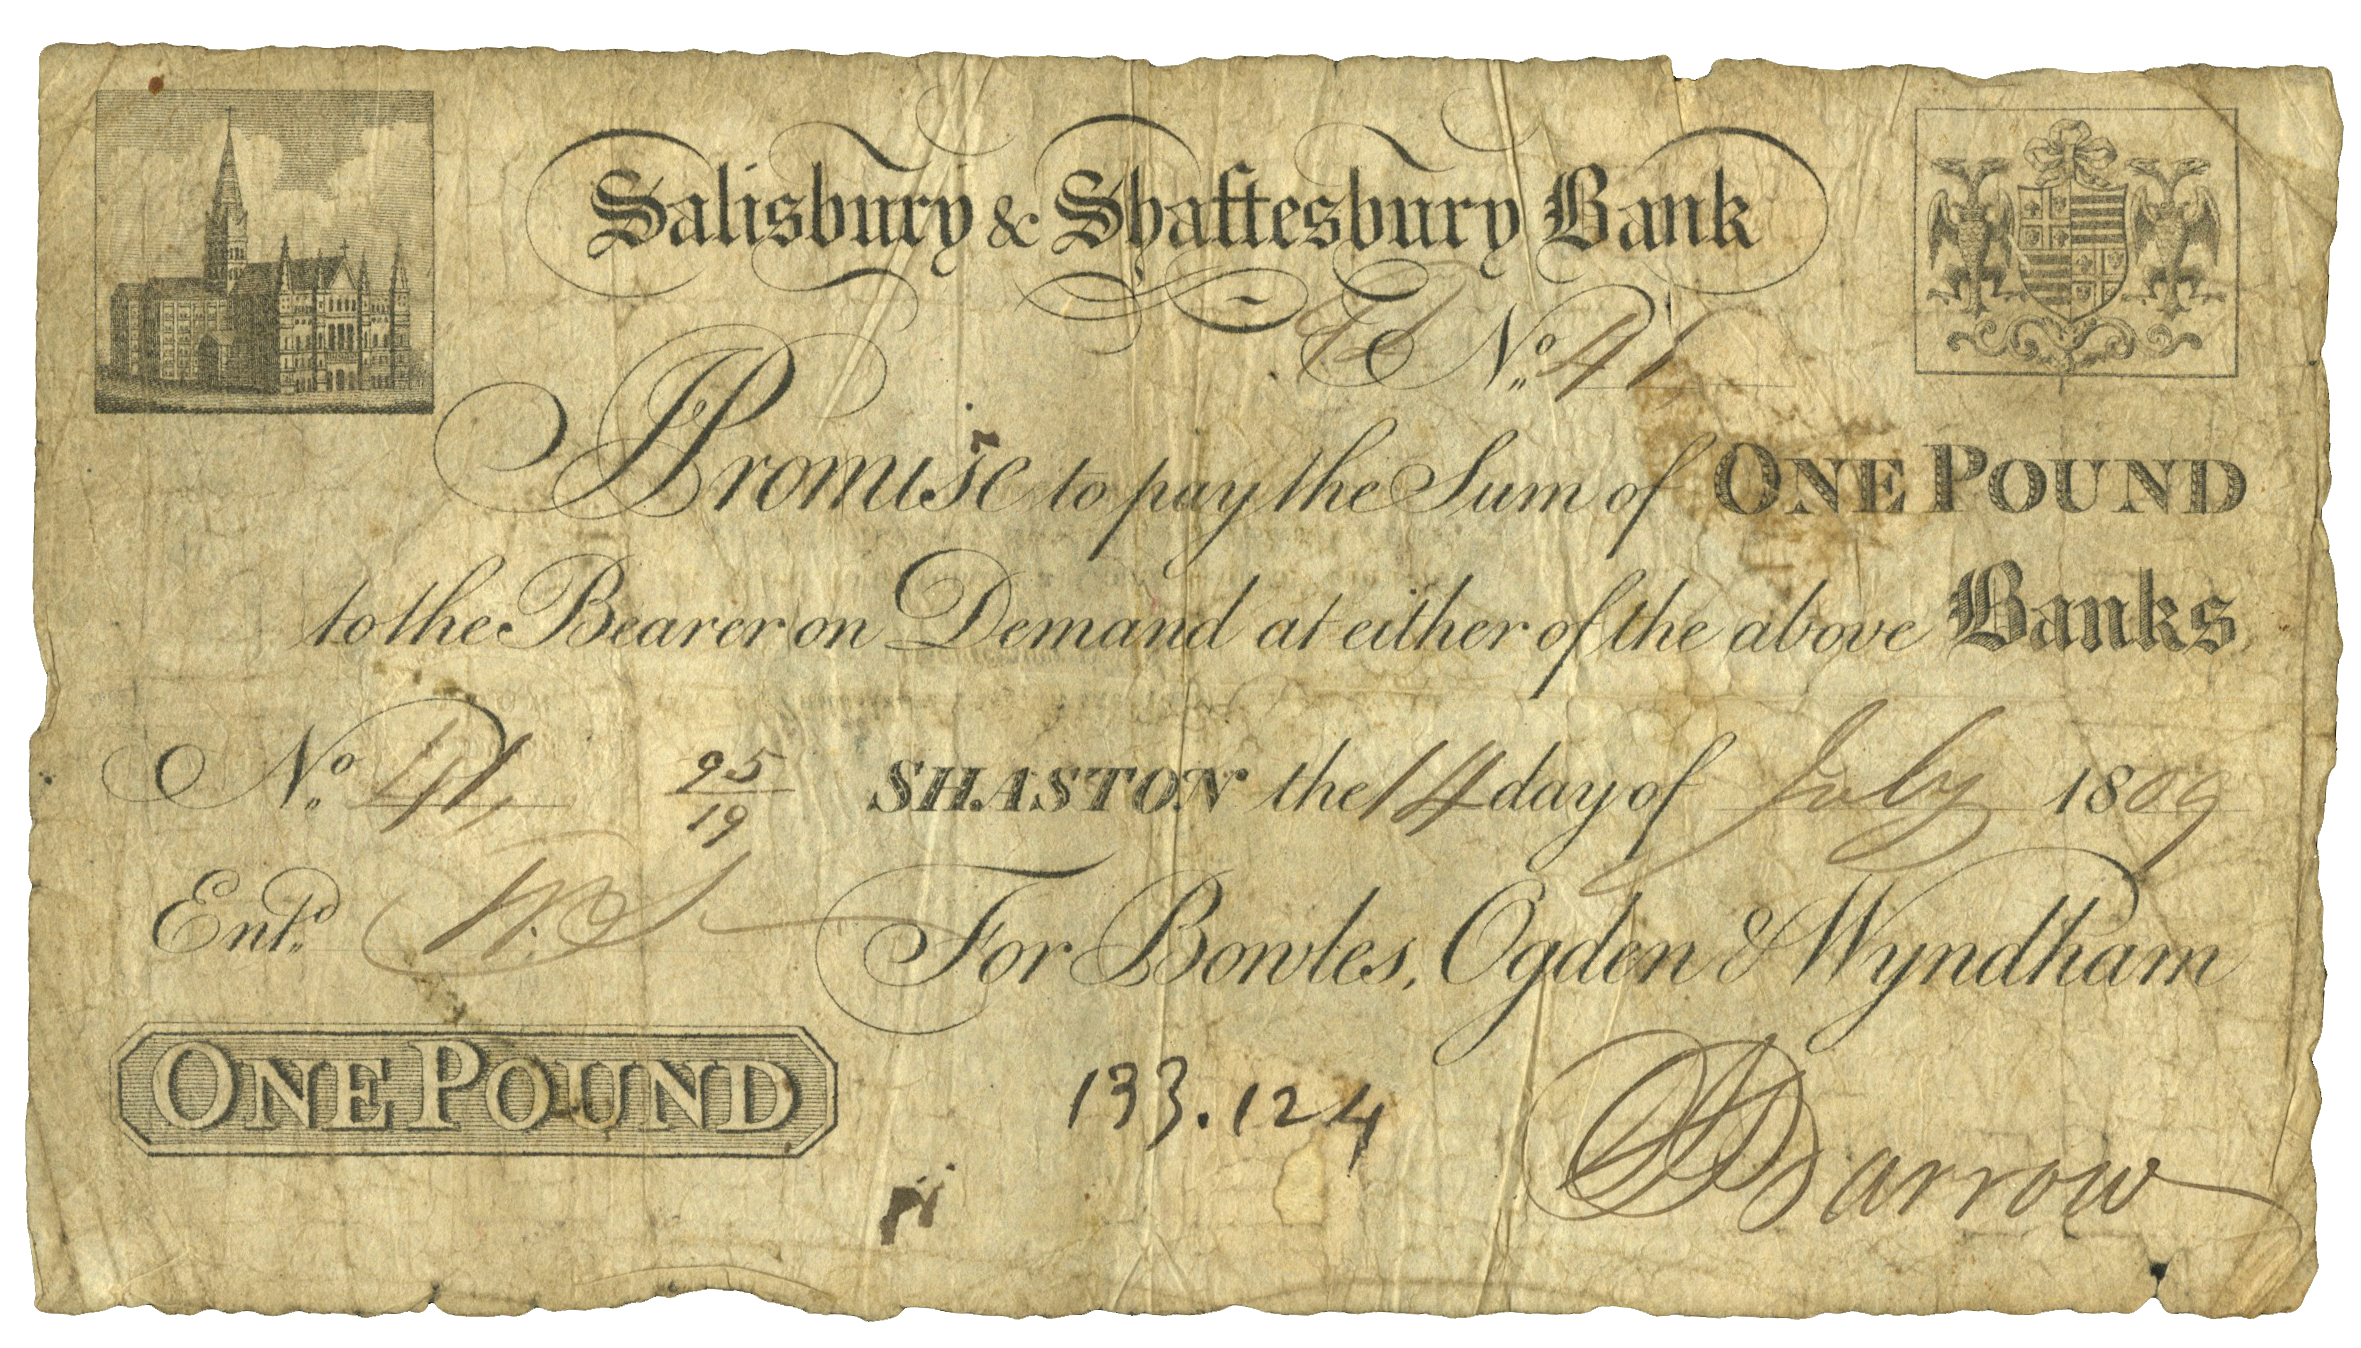 Salisbury & Shaftesbury Bank
No. 41
I Promise to pay the Sum of ONE POUND
to the Bearer on Demand at either of the above Banks
No. 41, 95/19 SHASTON the 14 day of July 1809
Entd.
For Bowles, Ogden & Wyndham
ONE POUND
133.124
Barrow